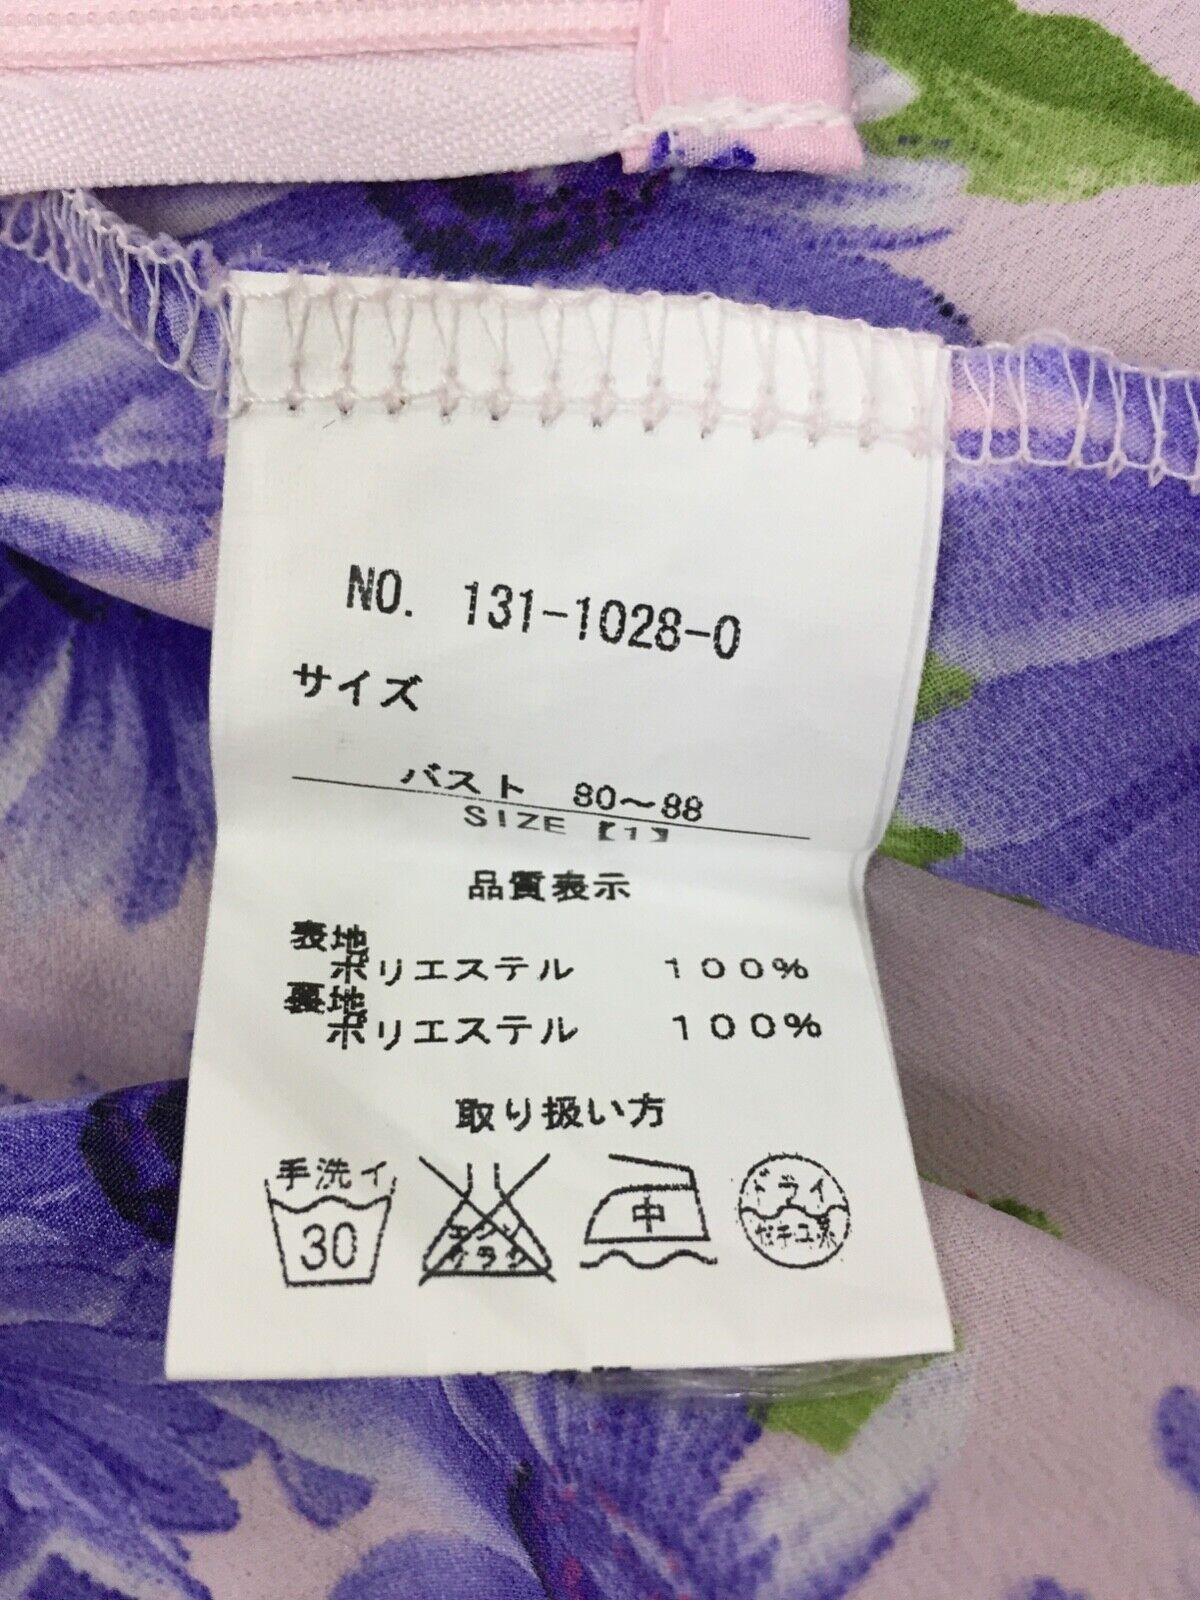 NO. 131-1028-0
サイズ
バスト 80～88
SIZE【1】
品質表示
表地
ポリエステル 100%
裏地
ポリエステル 100%
取り扱い方
手洗イ
30
エンソ
サラシ
中
ドライ
セキユ系